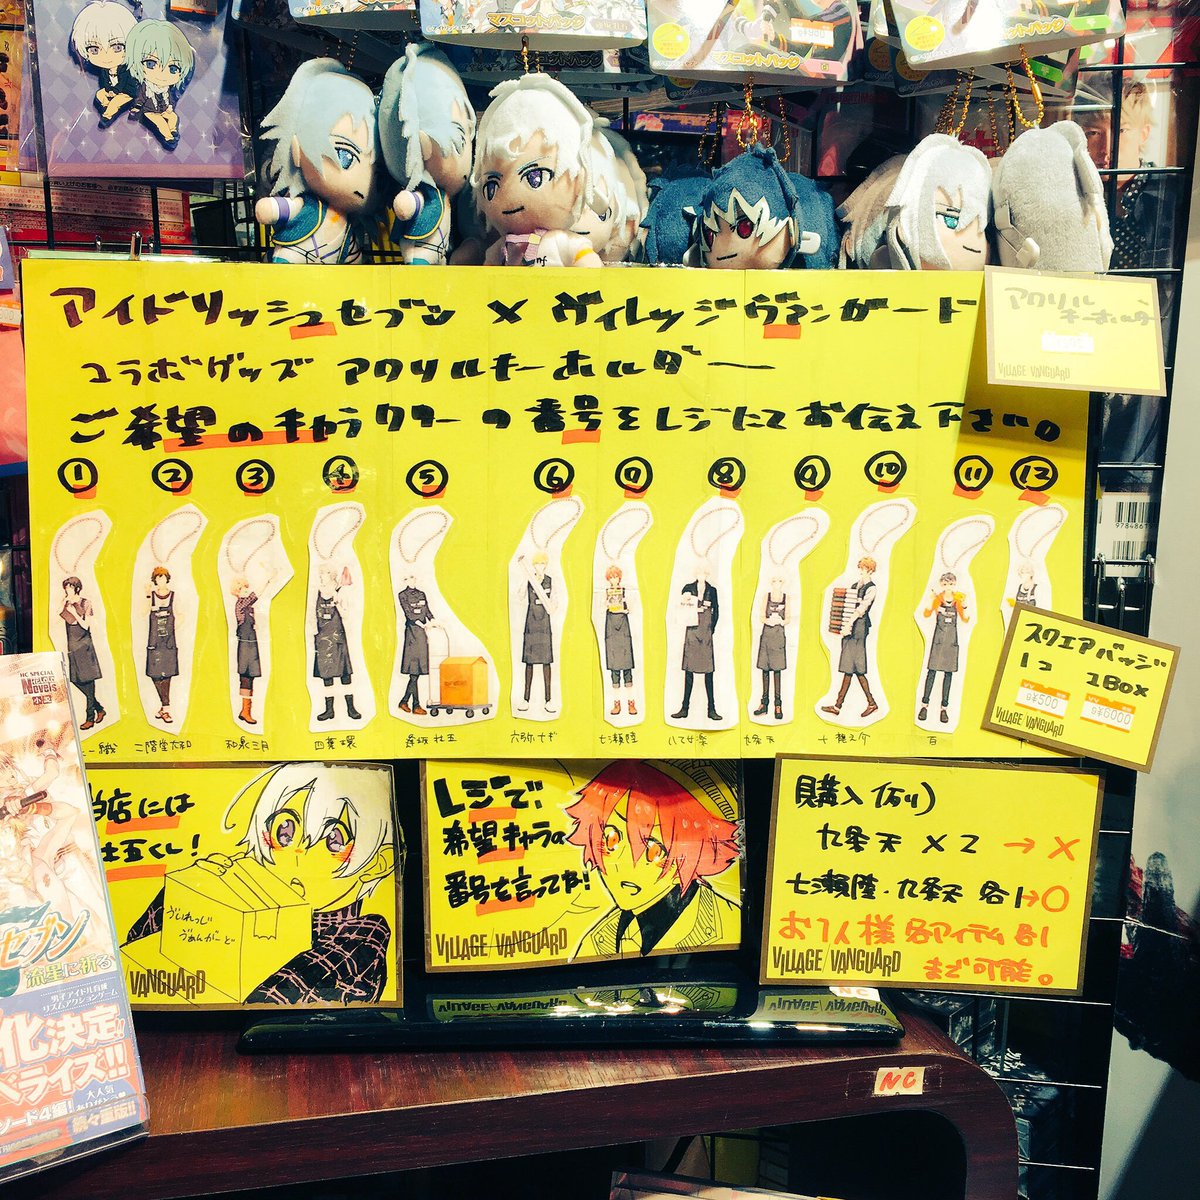 マスコットパック
マスコットパック
アイドリッシュセブン × ヴィレッジヴァンガード
コラボグッズ アクリルキーホルダー
ご希望のキャラクターの番号をレジにてお伝え下さい。
アクリル
キーホルダー
VILLAGE VANGUARD
① ② ③ ④ ⑤ ⑥ ⑦ ⑧ ⑨ ⑩ ⑪ ⑫
一織 二階堂大和 和泉三月 四葉環 逢坂壮五 六弥ナギ 七瀬陸 八乙女楽 九条天 十龍之介 百
スクエアバッジ
1コ 1Box
G¥500 G¥6000
VILLAGE VANGUARD
店には
壮五くん!
ゔぃれっじ
ゔぁんがーど
VANGUARD
レジで、
希望キャラの
番号を言ってな!
VILLAGE/VANGUARD
購入例)
九条天 ×2 → ×
七瀬陸・九条天 各1→○
お1人様各アイテム各1
まで可能。
VILLAGE/VANGUARD
NC
Novels
小説
セブン
流星に祈る
男子アイドル育成
リズムアクションゲーム
化決定!!
ライズ!!
ソード4編!
大人気
続々重版!!